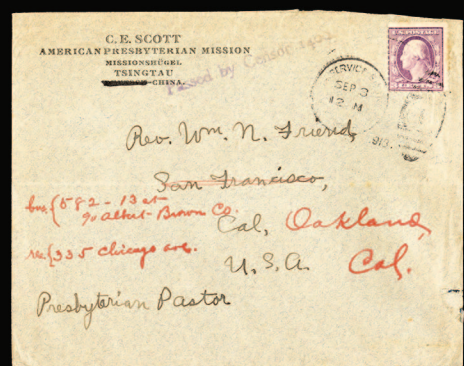 C. E. SCOTT
AMERICAN PRESBYTERIAN MISSION
MISSIONSHÜGEL
TSINGTAU
CHINA.
Passed by Censor
U.S. POSTAGE
SERVICE
SEP 3
12 M
Rev. Wm. N. Friend,
San Francisco,
bus. { 582 - 13 at
℅ Albert Brown Co.
Cal, Oakland,
res. { 335 Chicago ave.
U. S. A. Cal.
Presbyterian Pastor